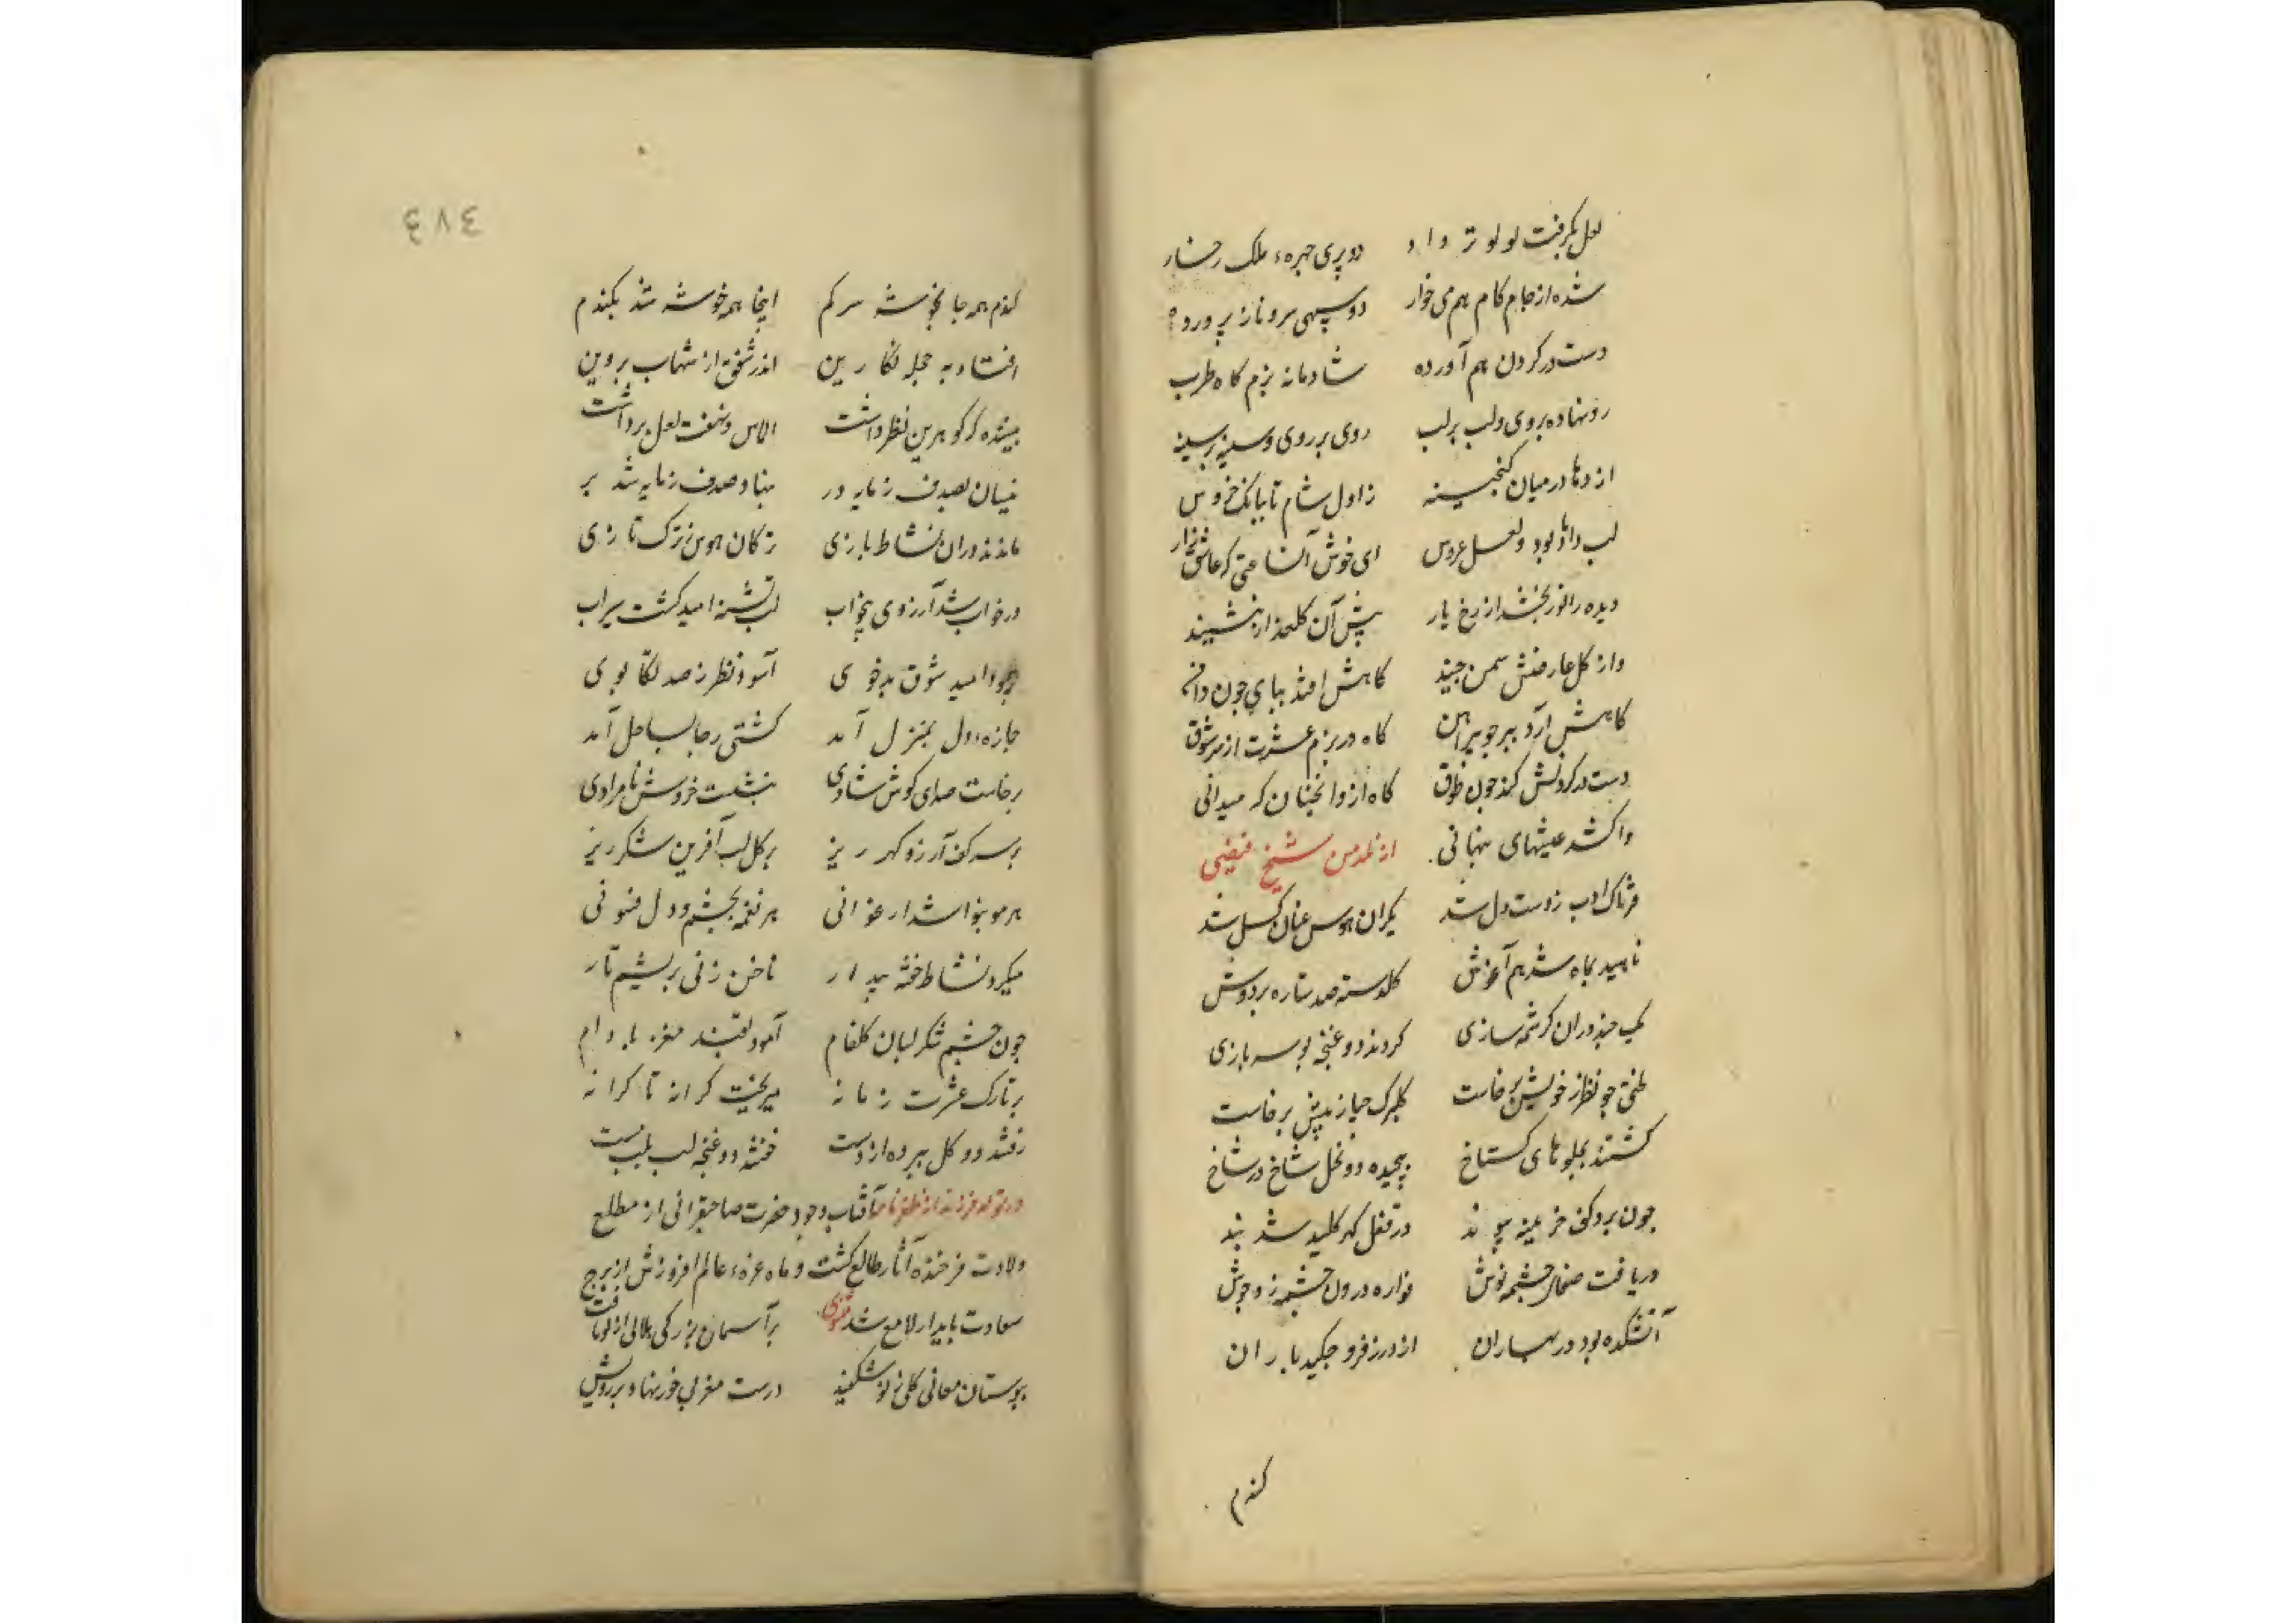 لعل بگرفت لولو تر داد دو پری جهره ملک رخسار
شده از جام کام هم می خوار دو سهی سرو ناز پرورده
دست در کردن هم آورده شادمانه بزم کاه طرب
رو نهاده بروی ولب بر لب روی بر روی و سینه بر سینه
اژدها در میان کنجینه ز اول شام تا ببانک خروس
لب داماد بود و لعل عروس ای خوش آنساعتی که عاشق زار
دیده را نور بخشد از رخ یار پیش آن کلعذار بنشیند
واز کل عارضش سمن جیند کاهش افتد بپای جون دامن
کاهش آرد ببر جو پیراهن کاه در بزم عشرت از سر شوق
دست در کردنش کند جون طوق کاه ازو انجنان که میدانی
واکشد عیشهای نهانی از نلدمن شیخ فیضی
فتراک ادب ز دست دل شد یکران هوس عنان کسل شد
ناهید بماه شد هم آغوش کلدسته صد ستاره بر دوش
یک جند دران کرشمه سازی کردند دو غنجه بوسه بازی
لختی جو نظر ز خویش برخاست کلبرک حیا ز پیش برخاست
کشتند بجلوهای کستاخ پیجیده دو نخل شاخ در شاخ
جون برد کف خزینه پیوند در قفل کهر کلید شد بند
دریافت صفای جشمه نوش فواره درون جشمه زد جوش
آتشکده بود در بهاران از درز فرو جکید باران
کندم
٤٧٤
کندم همه جا بخوشه سر کم اینجا همه خوشه شد بکندم
افتاد به حجله نکارین اندر شفق از شهاب پروین
بیننده که کوهرین نظر داشت الماس و سفت لعل برداشت
نیسان بصدف ز مایه در بنهاد و صدف ز مایه شد پر
ماندند دران نشاط بازی ترکان هوس ز ترک تازی
در خواب شد آرزوی بیخواب لب تشنه امید کشت سیراب
امید شوق بدخوی آسود نظر ز صد تکاپوی
جازه دل بمنزل آمد کشتی رجا بساحل آمد
برخاست صدای کوش شادی بنشست خروش نامرادی
بر سر کف آرزو کهر ریز بر کل لب آفرین شکر ریز
هر مو بنوا شد ارغوانی هر نغمه بجشم و دل فسونی
میکرد نشاط خفته بیدار ناخن زنی بریشم تار
جون جشم شکر لبان کلفام آمود بقند مغز بادام
بر تارک عشرت زمانه میریخت کرانه تا کرانه
رفتند دو کل ببرده از دست خفتند دو غنجه لب بلب بست
در تولد فرزند از ظفرنامه آفتاب وجود حضرت صاحبقرانی از مطلع
ولادت فرخنده آثار طالع کشت و ماه غره عالم افروزش از برج
سعادت پایدار لامع شد مثنوی بر آسمان بزرکی هلالی از نو تافت
ببوستان معانی کلی ز نو شکفید درست مغربی خور نهاد بر رویش